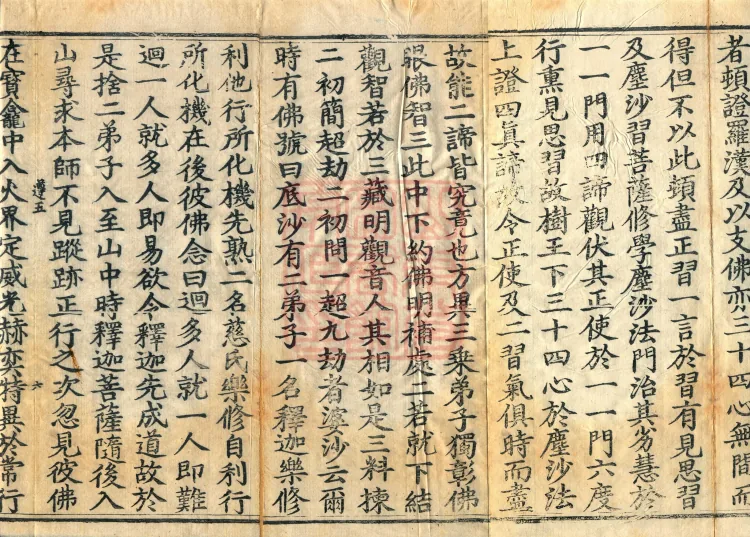 者頓證羅漢及以支佛亦三十四心無間而
得但不以此頓盡正習一言於習有見思習
及塵沙習菩薩修學塵沙法門治其劣慧於
一一門用四諦觀伏其正使於一一門六度
行熏見思習故樹王下三十四心於塵沙法
上證四眞諦故令正使及二習氣俱時而盡
故能二諦皆究竟也方異三乘弟子獨彰佛
眼佛智三此中下約佛明補處二若就下結
觀智若於三藏明觀音人其相如是三料揀
二初簡超劫二初問一超九劫者婆沙云爾
時有佛號曰底沙有二弟子一名釋迦樂修
利他行所化機先熟二名慈民樂修自利行
所化機在後彼佛念曰迴多人就一人即難
迴一人就多人即易欲令釋迦先成道故於
是捨二弟子入至山中時釋迦菩薩隨後入
山尋求本師不見蹤跡正行之次忽見彼佛
五 六
在寶龕中入火界定威光赫奕特異於常行